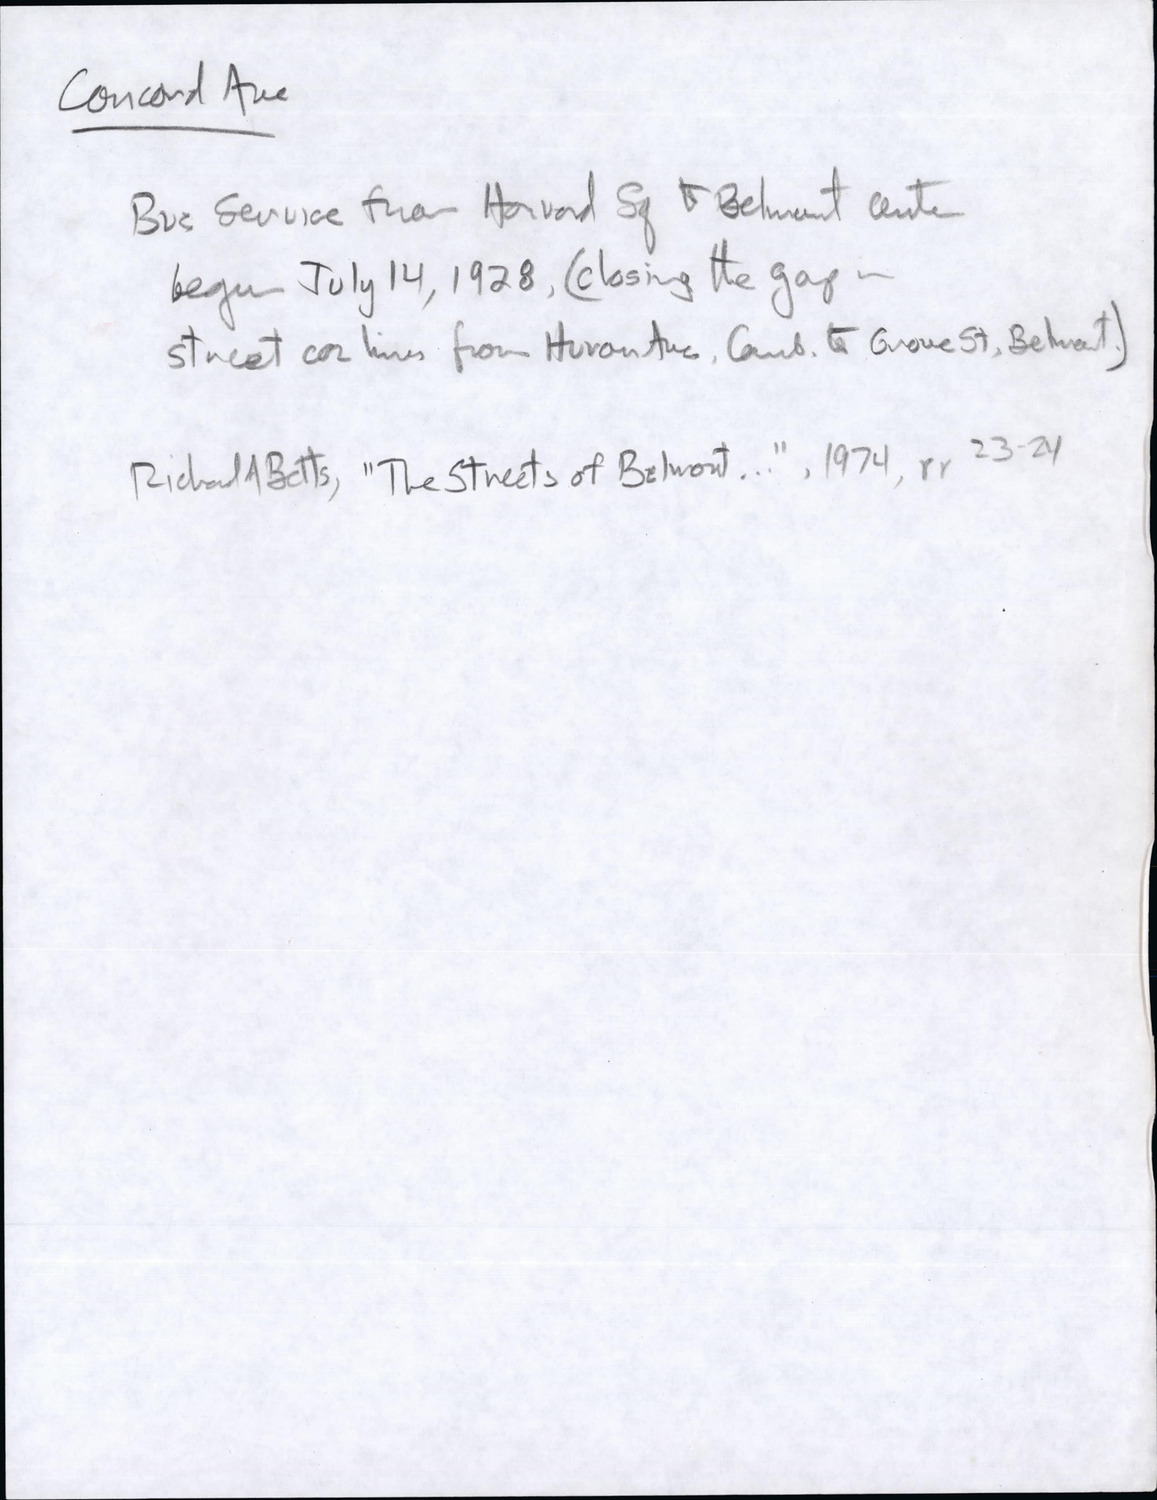 Concord Ave
Bus Service from Harvard Sq to Belmont center
began July 14, 1928, (closing the gap in
street car lines from Huron Ave, Camb. to Grove St, Belmont.)
Richard A Betts, "The Streets of Belmont...", 1974, pp 23-24